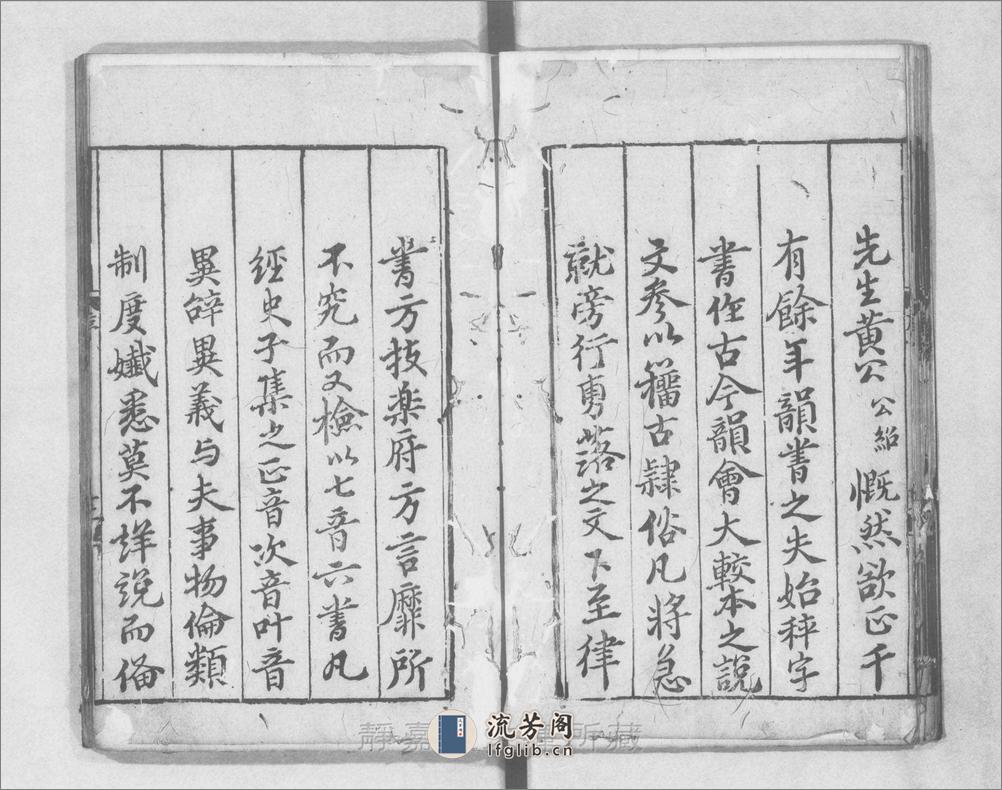 先生黄公公紹慨然欲正千
有餘年韻書之失始秤字
書作古今韻會大較本之說
文参以籀古隸俗凡將急
就旁行旉落之文下至律
書方技楽府方言靡所
不究而又檢以七音六書凡
經史子集之正音次音叶音
異辞異義与夫事物倫類
制度孅悉莫不詳說而俻
靜嘉 所藏
流芳阁
lfglib.cn